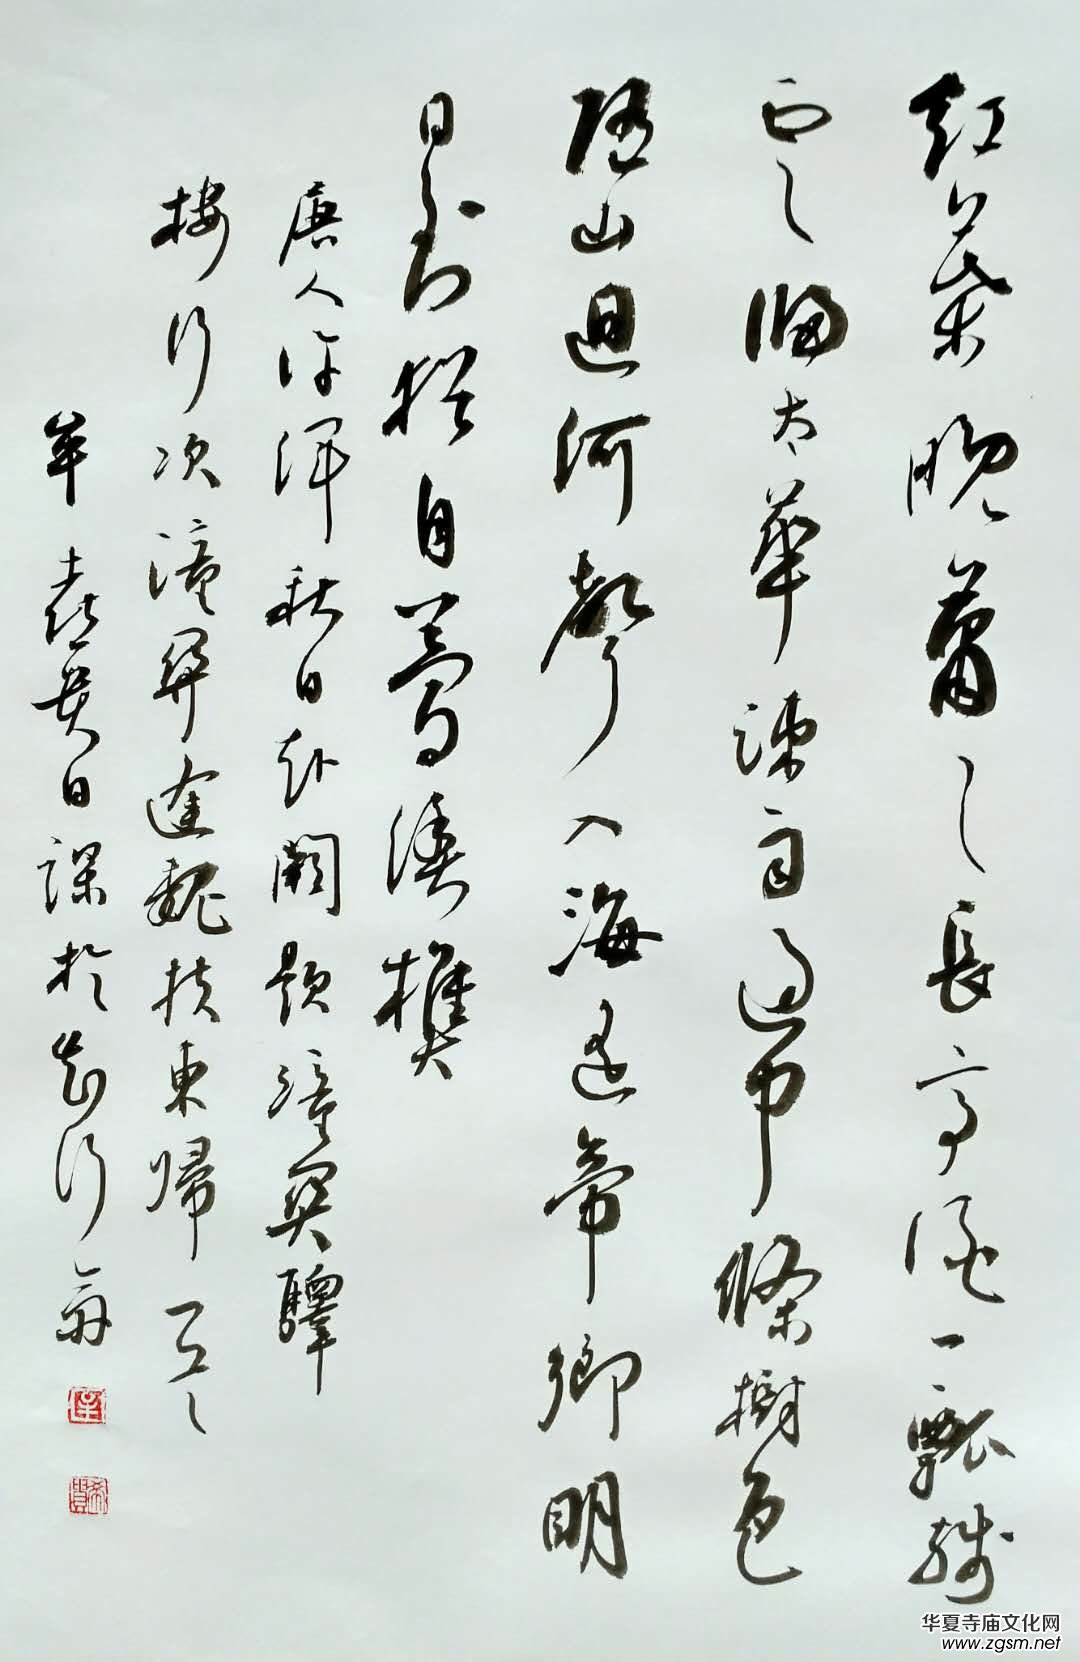 紅葉晚蕭〻長亭酒一瓢殘
雲歸太華疎雨過中條樹色
隨山迥河聲入海遙帝鄉明
日到猶自夢漁樵
唐人許渾秋日赴闕題潼關驛
樓行次潼關逢魏扶東歸云〻
日課於知行齋
华夏寺庙文化网
www.zgsm.net